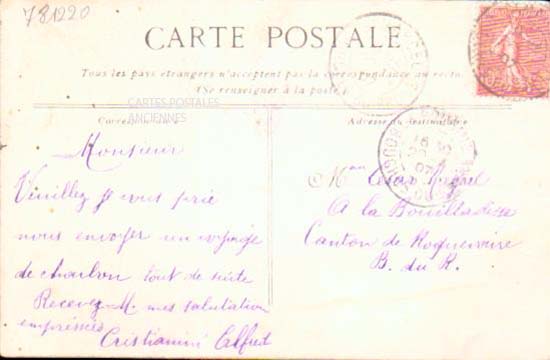 781220
CARTE POSTALE
Tous les pays étrangers n'acceptent pas la correspondance au recto
(Se renseigner à la poste)
CARTES POSTALES
ANCIENNES
Correspondance
Adresse du destinataire
Monsieur
Veuillez je vous prie
nous envoyer un
de charbon tout de suite
Recevez M. mes salutation
empressées
Cristianini Alfred
Mon
A la Bouilladisse
Canton de Roquevaire
B. du R.